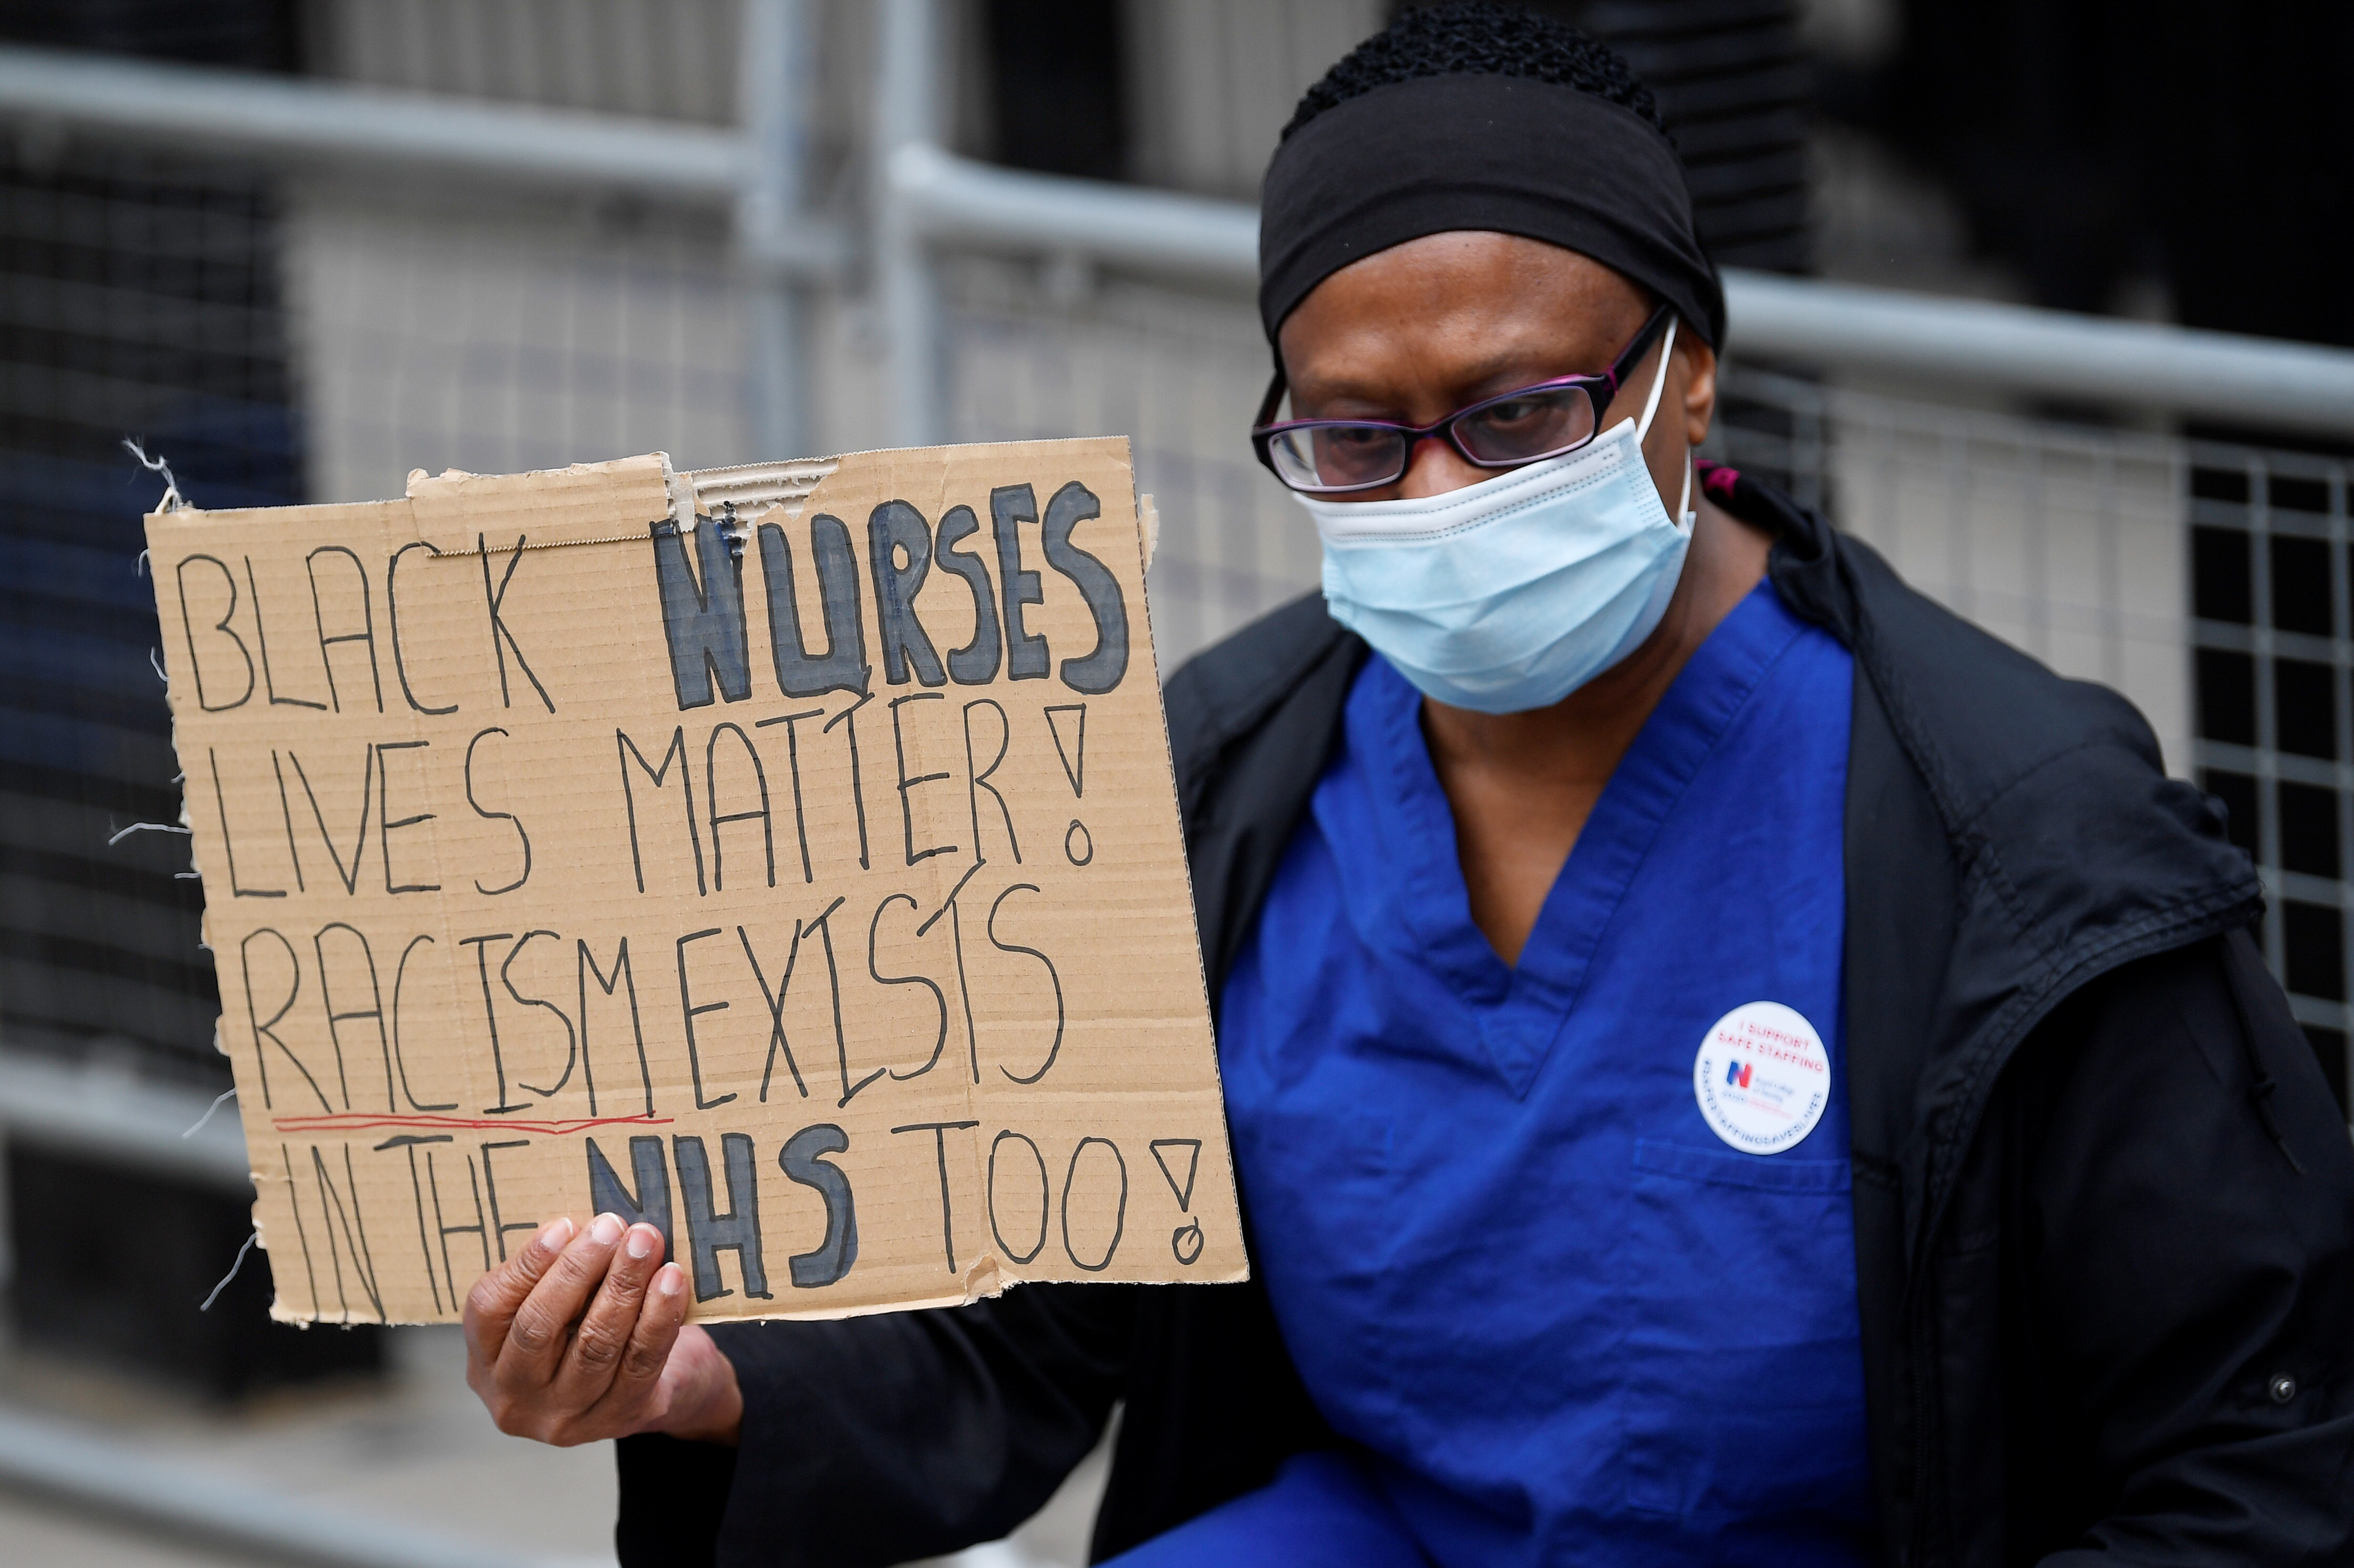 BLACK NURSES
LIVES MATTER!
RACISM EXISTS
IN THE NHS TOO!
I SUPPORT
SAFE STAFFING
N
Royal College
of Nursing
#SAFESTAFFINGSAVESLIVES